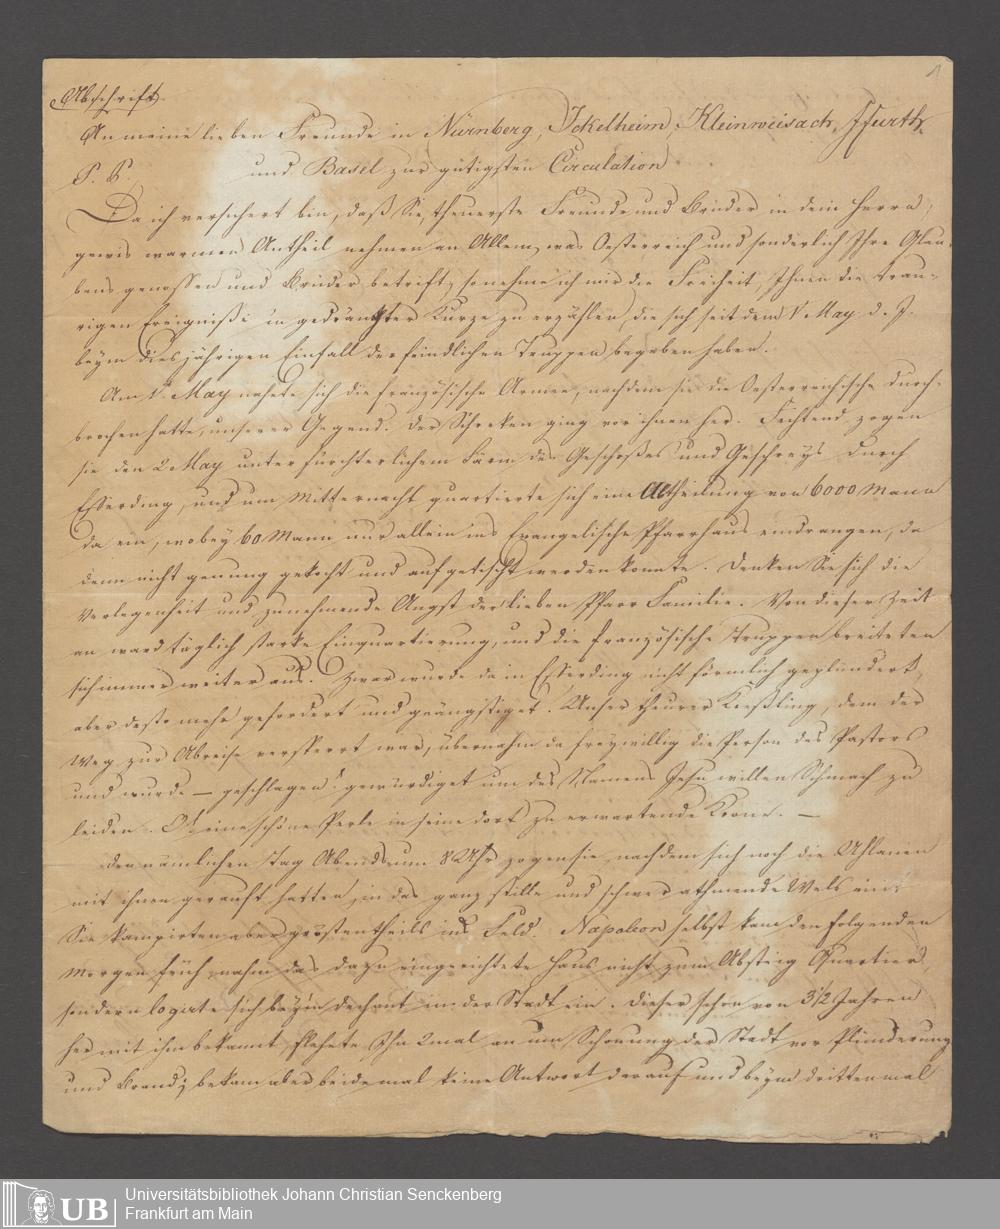 Abschrift.
1
An meine lieben Freunde in Nürnberg, Ickelheim, Kleinweisach, Fürth,
und Basel zur gütigsten Circulation.
P. P.
Da ich versichert bin, daß Sie, theuerste Freunde und Brüder in dem Herrn,
gewis warmen Antheil nehmen an Allem, was Oesterreich und sonderlich Ihre Glau-
bens genossen und Brüder betrift, so nehme ich mir die Freiheit, Ihnen die trau-
rigen Ereigniße in gedrängter Kürze zu erzählen, die sich seit dem 1. May d. J.
beym diesjährigen Einfall der feindlichen Truppen begeben haben.
Am 1. May nahete sich die französische Armee, nachdem sie die Oesterreichische durch-
brochen hatte, unserer Gegend. Der Schreken ging vor ihnen her. Fechtend zogen
sie den 2 May unter fürchterlichem Lärm des Geschoßes und Geschreys durch
Efferding, und um Mitternacht quartierte sich eine Abtheilung von 6000 Mann
da ein, wobey 60 Mann nur allein ins Evangelische Pfarrhaus eindrangen, da
denn nicht genung gekocht und aufgetischt werden konnte. Denken Sie sich die
Verlegenheit und zunehmende Angst der lieben Pfarr Familie. Von dieser Zeit
an ward täglich starke Einquartierung, und die französische Truppen breiteten
sich immer weiter aus. Zwar wurde da in Efferding nicht förmlich geplündert,
aber desto mehr gefordert und geängstiget. Unser theurer Kießling, dem der
Weg zur Abreise versperrt war, übernahm da freywillig die Person des Pastors
und wurde — geschlagen! gewürdiget um des Namens Jesu willen Schmach zu
leiden. O! eine schöne Perle in seine dort zu erwartende Krone. —
Den nämlichen Tag Abends um 8 Uhr zogen sie, nachdem sich noch die Uhlanen
mit ihnen gerauft hatten, in das ganz stille und schwer athmende Wels ein.
Sie kampirten aber gröstentheils ins Feld. Napoleon selbst kam den folgenden
Morgen früh, nahm das dazu eingerichtete Haus nicht zum Absteig Quartier,
sondern logirte sich beym Dechant in der Stadt ein. Dieser schon von 3 1/2 Jahren
her mit ihm bekannt flehete Ihn 2mal an um Schonung der Stadt vor Plünderung
und Brand; bekam aber beide mal keine Antwort darauf und beym dritten mal
UB
Universitätsbibliothek Johann Christian Senckenberg
Frankfurt am Main